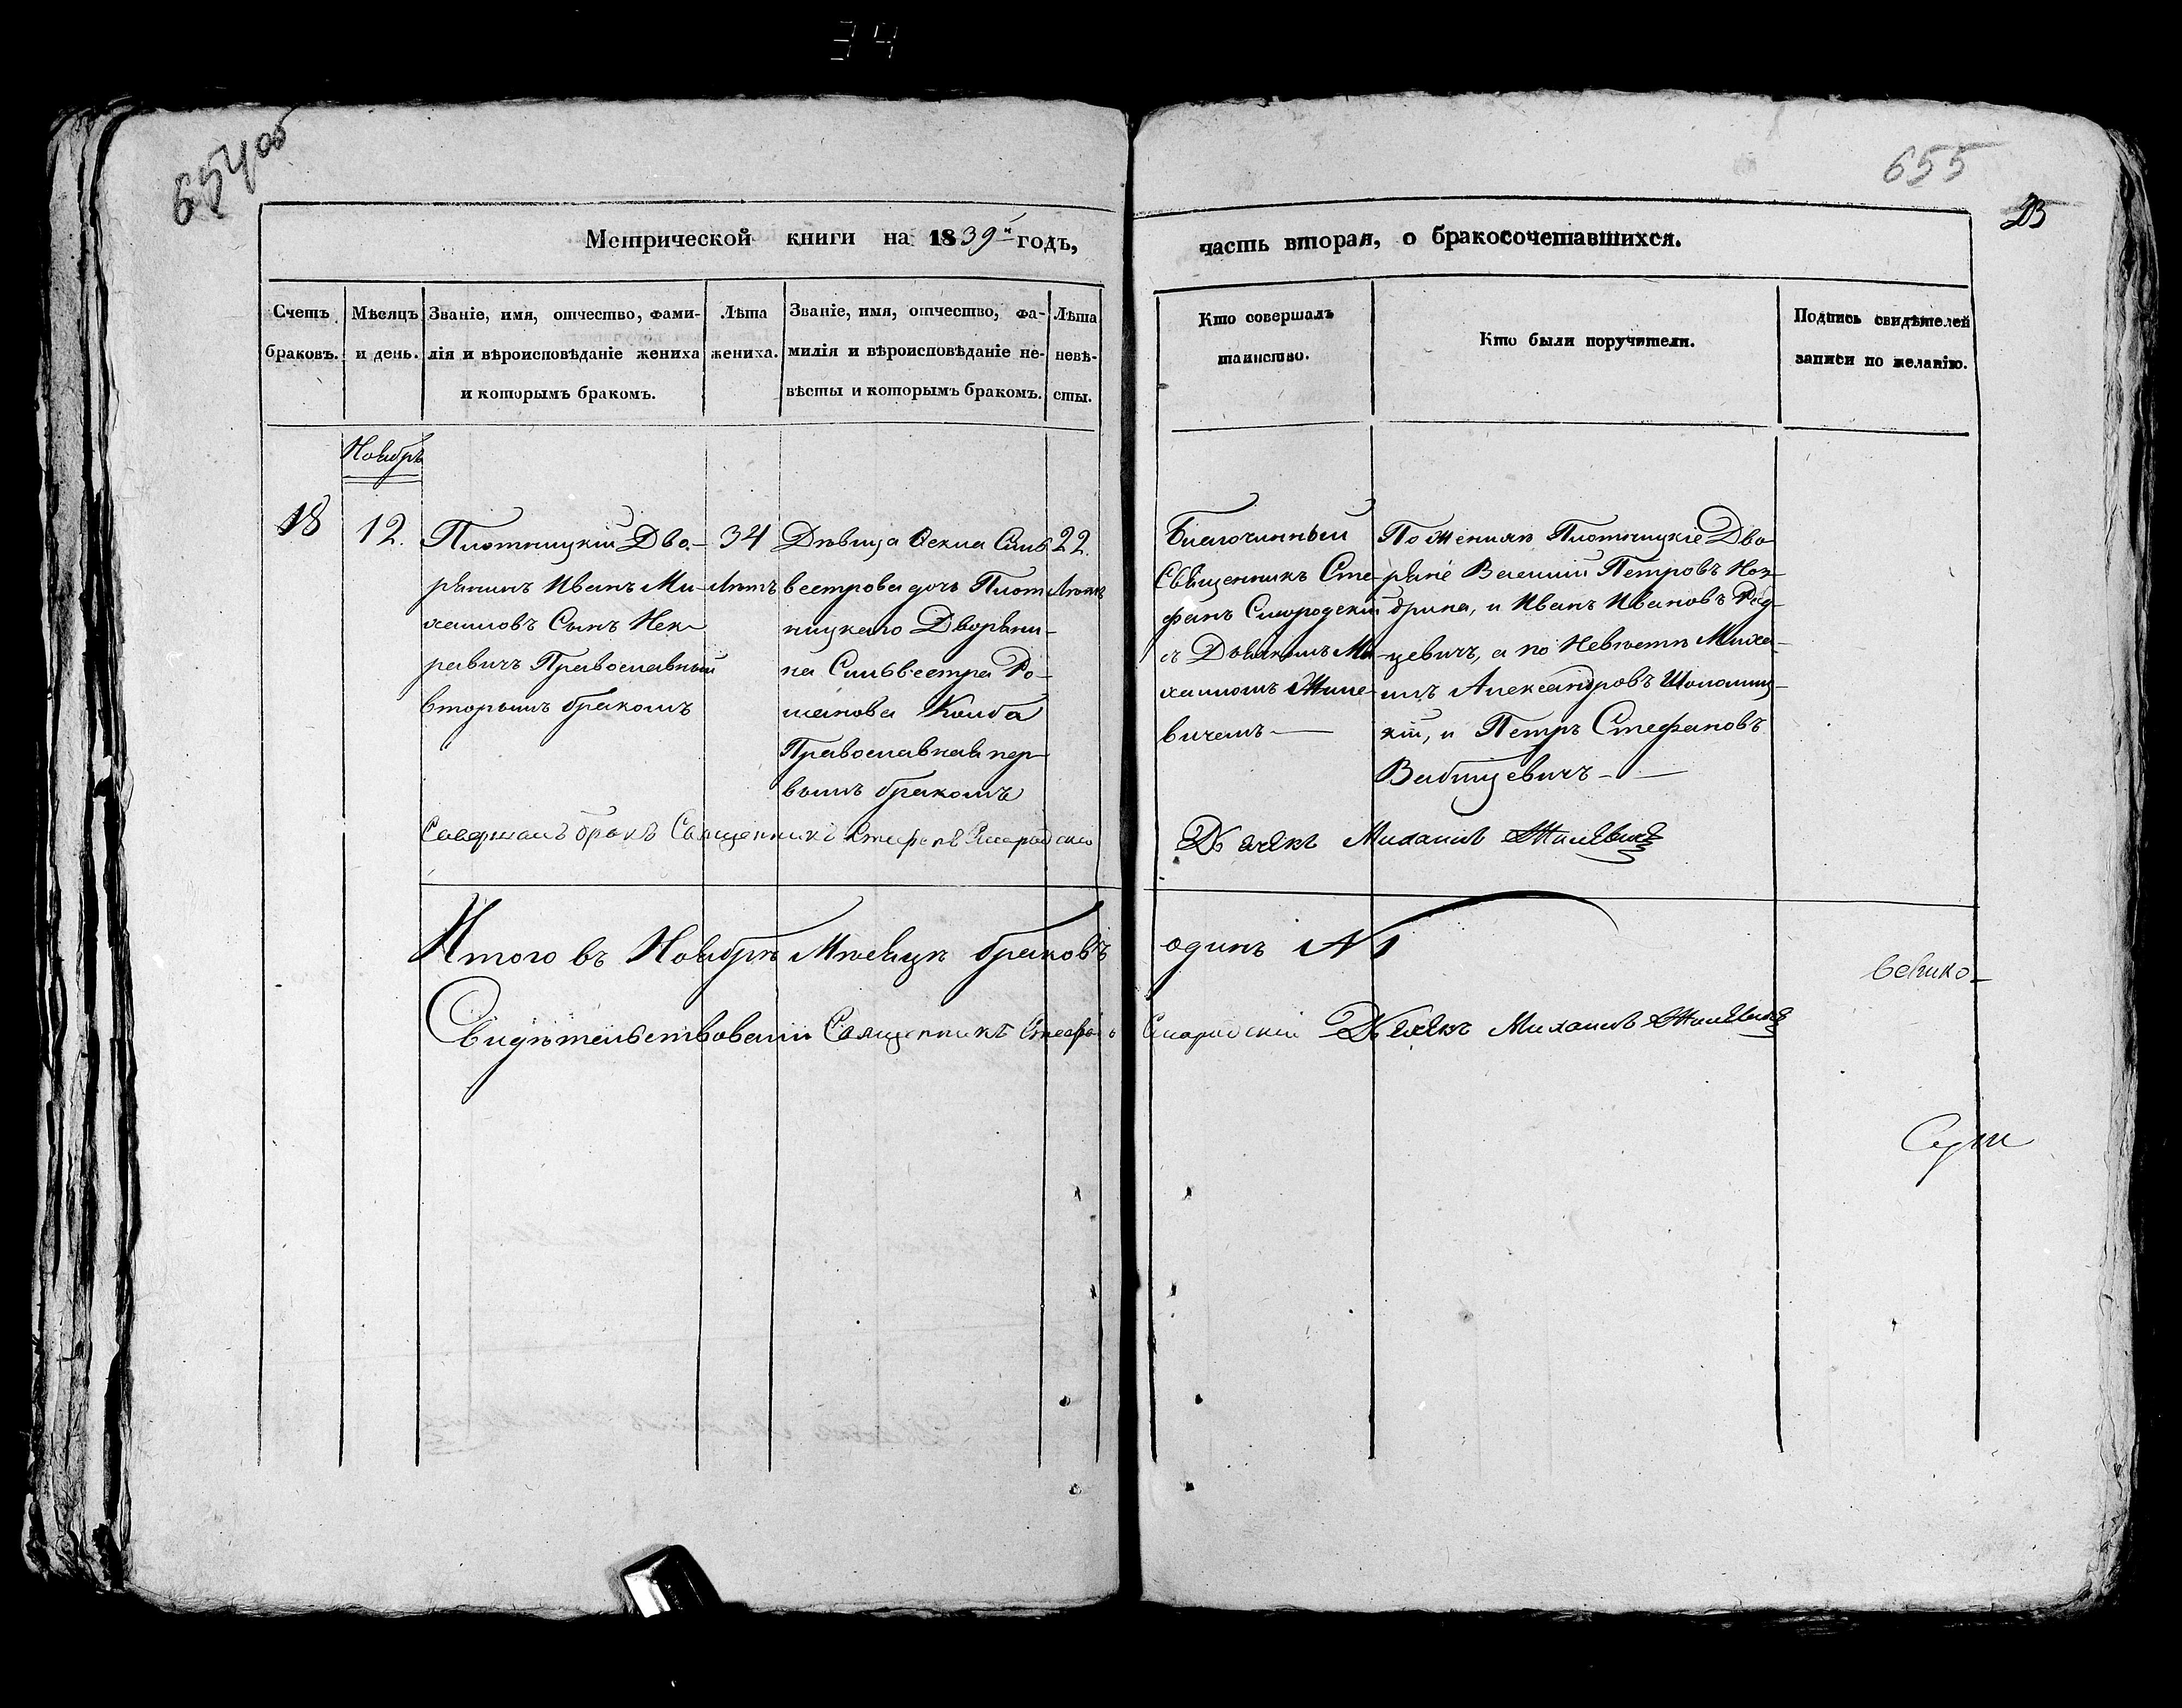 34
654об
655
23
Метрической книги на 1839й годъ, часть вторая, о бракосочетавшихся.
Счетъ браковъ.
Мѣсяцъ и день.
Званіе, имя, отчество, фами-
лія и вѣроисповѣданіе жениха
и которымъ бракомъ.
Лѣта
жениха.
Званіе, имя, отчество, фа-
милія и вѣроисповѣданіе не-
вѣсты и которымъ бракомъ.
Лѣта
невѣ-
сты.
Кто совершалъ
таинство.
Кто были поручители.
Подпись свидѣтелей
записи по желанію.
Ноябрь
18
12.
Плотницкій Дво-
рянинъ Иванъ Ми-
хаиловъ Сынъ Нек-
равичъ Православный
вторымъ бракомъ
34
Лѣтъ
Дѣвица Ѳекла Силь
вестрова дочь Плот
ницкаго Дворяни-
на Сильвестра Ро-
манова Колба
Православная пер-
вымъ бракомъ
22.
Лѣтъ
Благочинный
Священникъ Сте-
фанъ Смородскій
съ Дьячкомъ Ми-
хаиломъ Жиле-
вичемъ
По Женихѣ Плотницкіе Дво
ряне Василий Петровъ
и Иванъ Ивановъ Ред-
цевичъ, а по Невѣстѣ Миха-
илъ Александровъ Шоломиц-
кій, и Петръ Стефановъ
Вабищевичъ
Совершалъ бракъ Священникъ Стефанъ Смородскій
Дьячекъ Михаилъ Жилевичъ
Итого въ Ноябрѣ Мѣсяцѣ браковъ одинъ N 1
Свидѣтельствовали Священникъ Стефанъ Смородскій Дьячекъ Михаилъ Жилевичъ